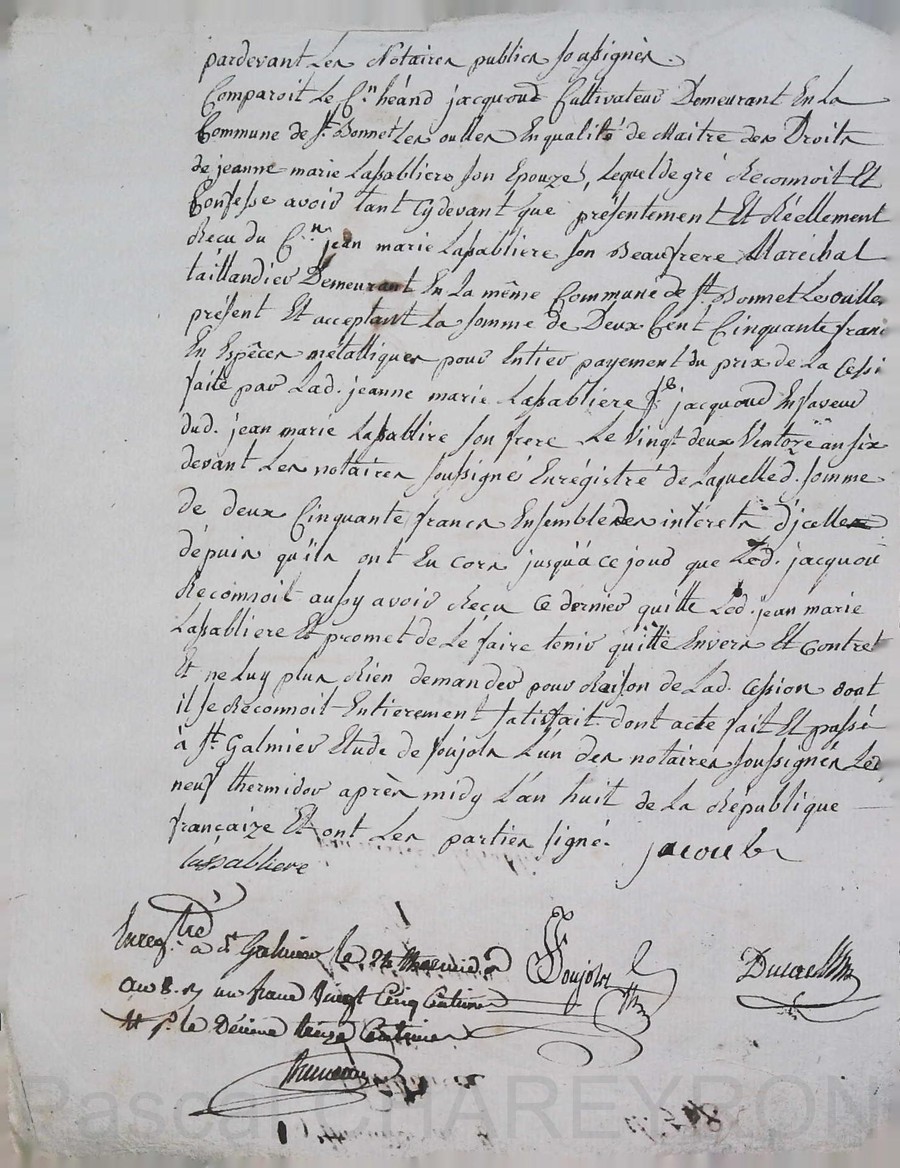 pardevant Les Notaires publics soussignés.
Comparoit Le C.en héand jacquoud Cultivateur Demeurant En La
Commune de St. Bonnet Les oulles En qualité de Maitre des Droits
de jeanne marie Lassabliere son Epouze, Lequel de gré Reconnoit Et
Confesse avoir tant Cydevant que présentement Et Réellement
Reçu du C.en jean marie Lassabliere son Beaufrere Maréchal
taillandier Demeurant En La même Commune de St. Bonnet Les oulle
présent Et acceptant La somme de Deux Cent Cinquante franc
En Espêces métalliques pour Entier payement du prix de La Cessi
faite par Lad. jeanne marie Lassabliere f.e jacquoud En faveur
dud. jean marie Lassablire son frere Le vingt deux Ventoze an six
devant Les notaires soussigné Enrégistré de Laquelled. somme
de deux Cinquante francs Ensemble des intérets d'jcelle
dépuis qu'ils ont Eu cors jusqu'à ce jour que Led. jacquou
Reconnoit aussy avoir Recu Ce dernier quitte Led. jean marie
Lassabliere Et promet de Lé faire tenir quitte Envers Et Contre
Et ne Luy plus Rien demander pour Raison de Lad. Cession dont
il se Reconnoit Entierement satisfait. dont acte fait Et passé
à St. Galmier Etude de soujols L'un des notaires soussignés Le
neuf thermidor après midy L'an huit de La République
françaize Et ont Les parties signé.
jacoud
lassabliere
Enreg.tré a St Galmier le Thermidor
an 8. R un franc Vingt Cinq Centimes
Soujols
Et p.r le Décime treize Centimes
Pascal CHAREYRON